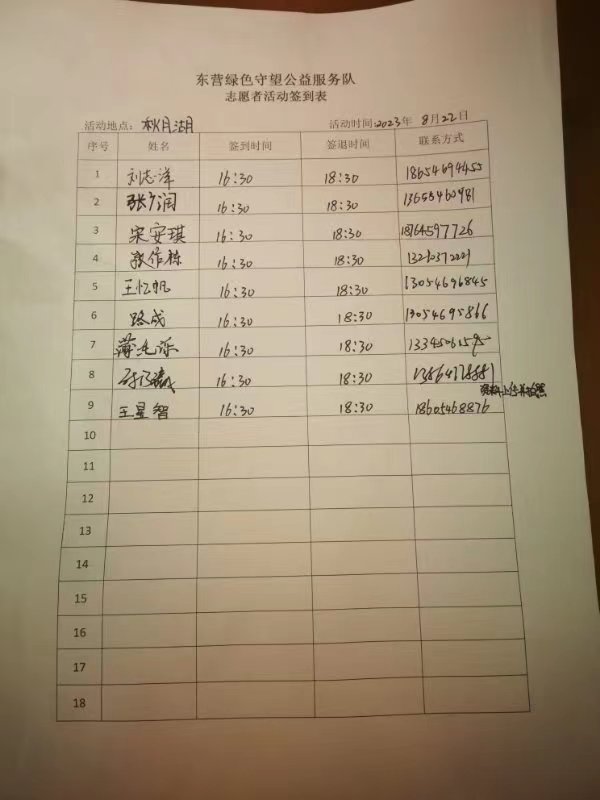 东营绿色守望公益服务队
志愿者活动签到表
活动地点: 秋月湖 活动时间:2023年 8月22日
序号 姓名 签到时间 签退时间 联系方式
1 刘志洋 16:30 18:30 18654694455
2 张广润 16:30 18:30 13655460981
3 宋安琪 16:30 18:30 18764597726
4 16:30 18:30
5 王忆帆 16:30 18:30 13054696845
6 路成 16:30 18:30 13054695866
7 16:30 18:30
8 16:30 18:30
9 王星智 16:30 18:30 18605468876
10
11
12
13
14
15
16
17
18